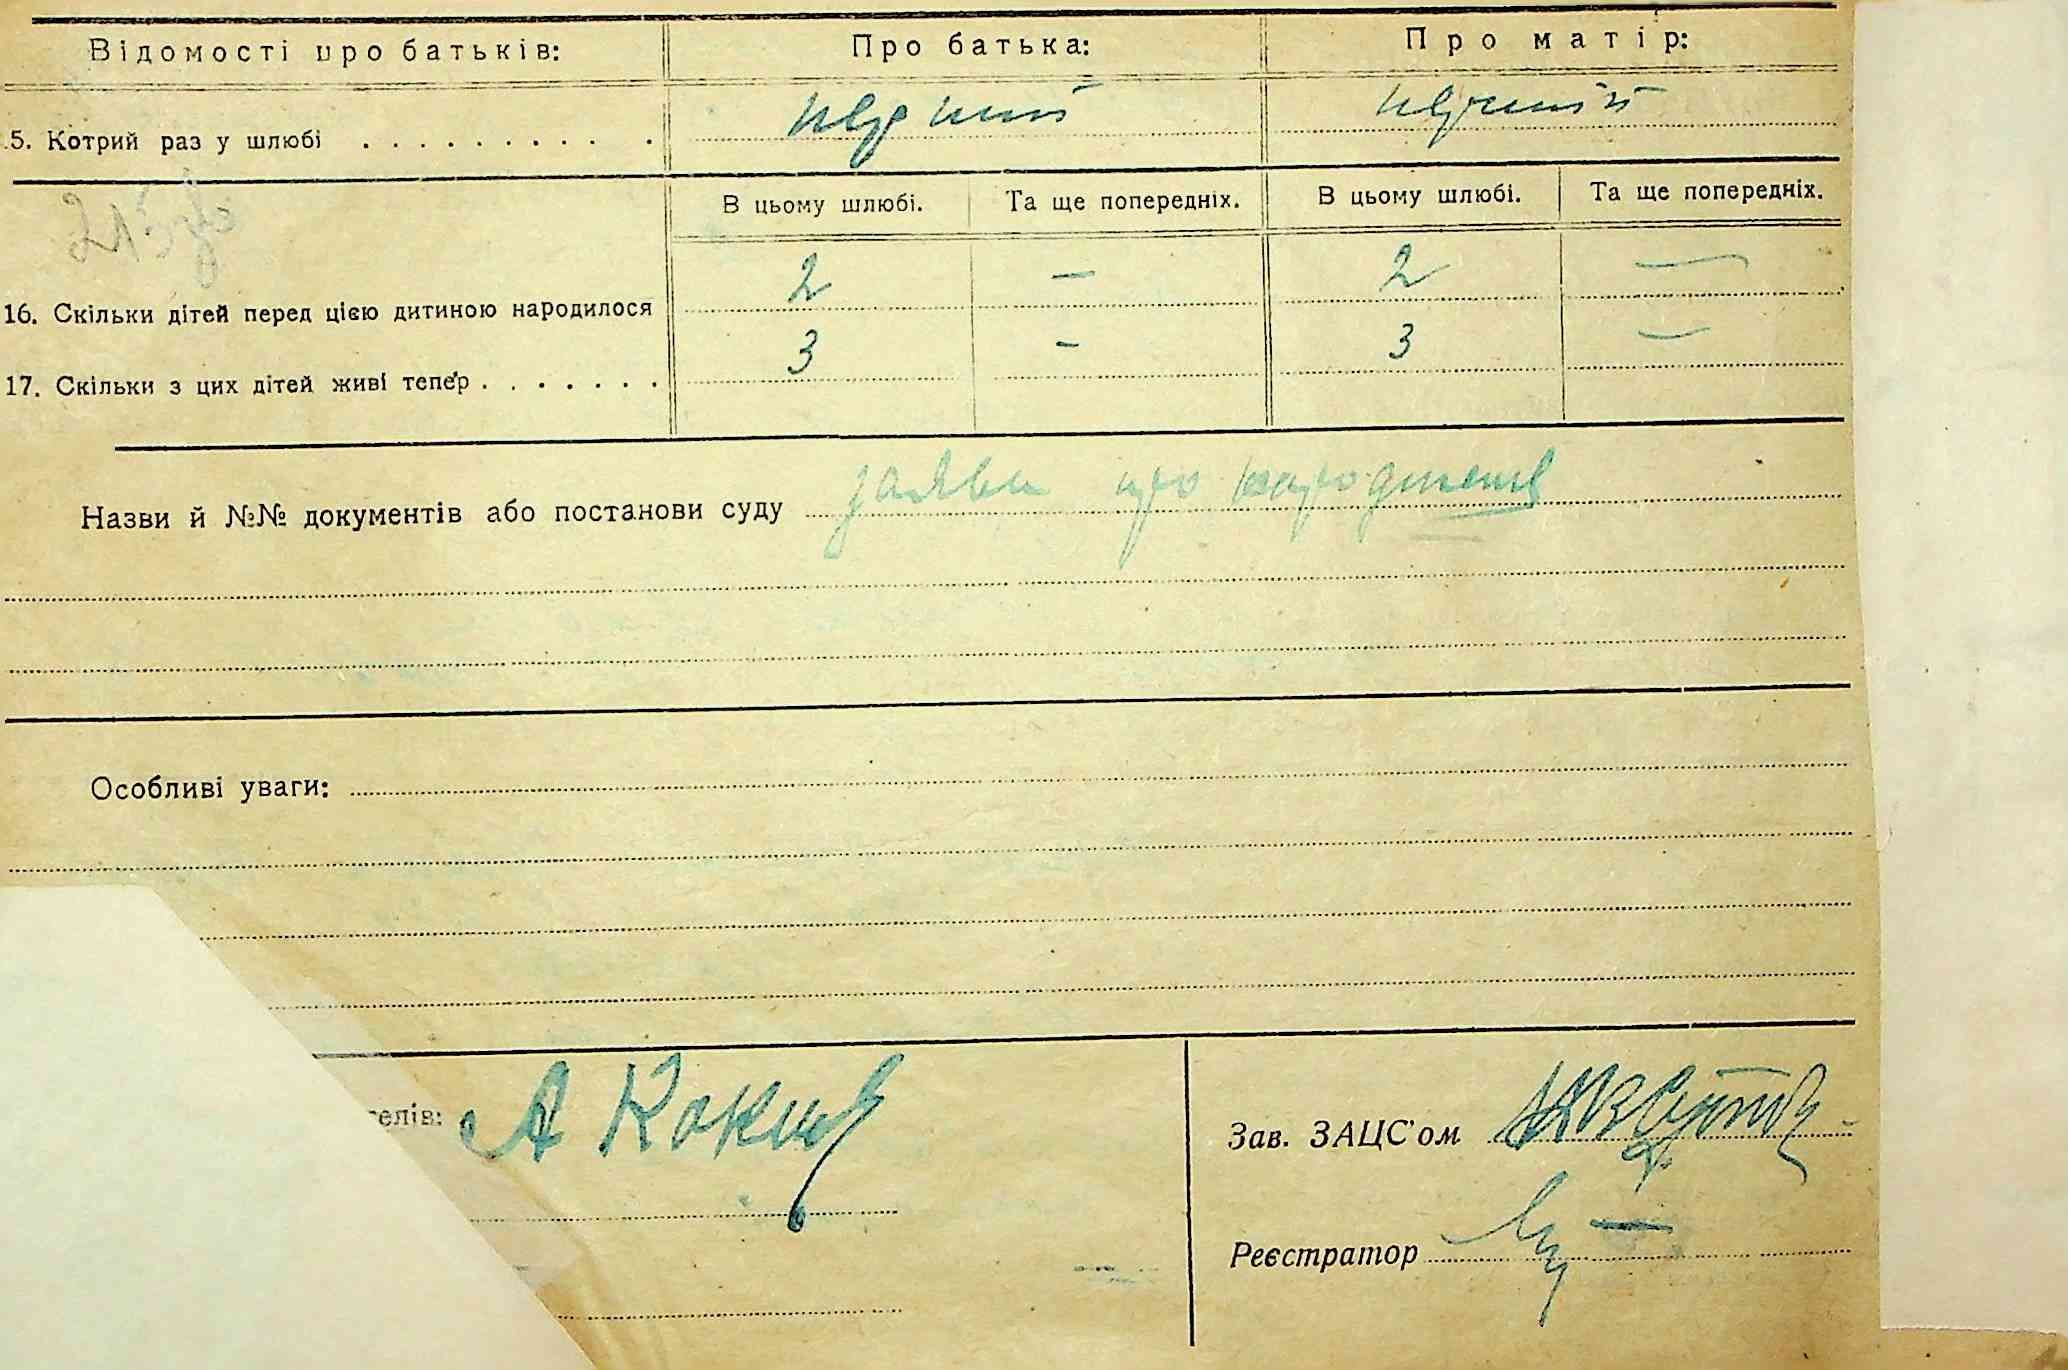 Відомості про батьків: Про батька: Про матір:
5. Котрий раз у шлюбі . . . . . . . . . . перший перший
В цьому шлюбі. Та ще попередніх. В цьому шлюбі. Та ще попередніх.
16. Скільки дітей перед цією дитиною народилося 2 — 2 —
17. Скільки з цих дітей живі тепер . . . . . . . 3 - 3 —
Назви й №№ документів або постанови суду заява про народження
Особливі уваги:
телів: А
Зав. ЗАЦС'ом
Реєстратор